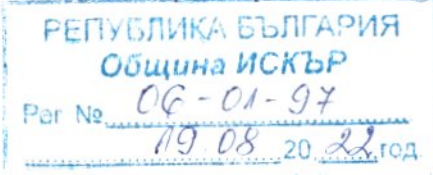 РЕПУБЛИКА БЪЛГАРИЯ
Община ИСКЪР
Рег № 06-01-97
19.08 2022 год.